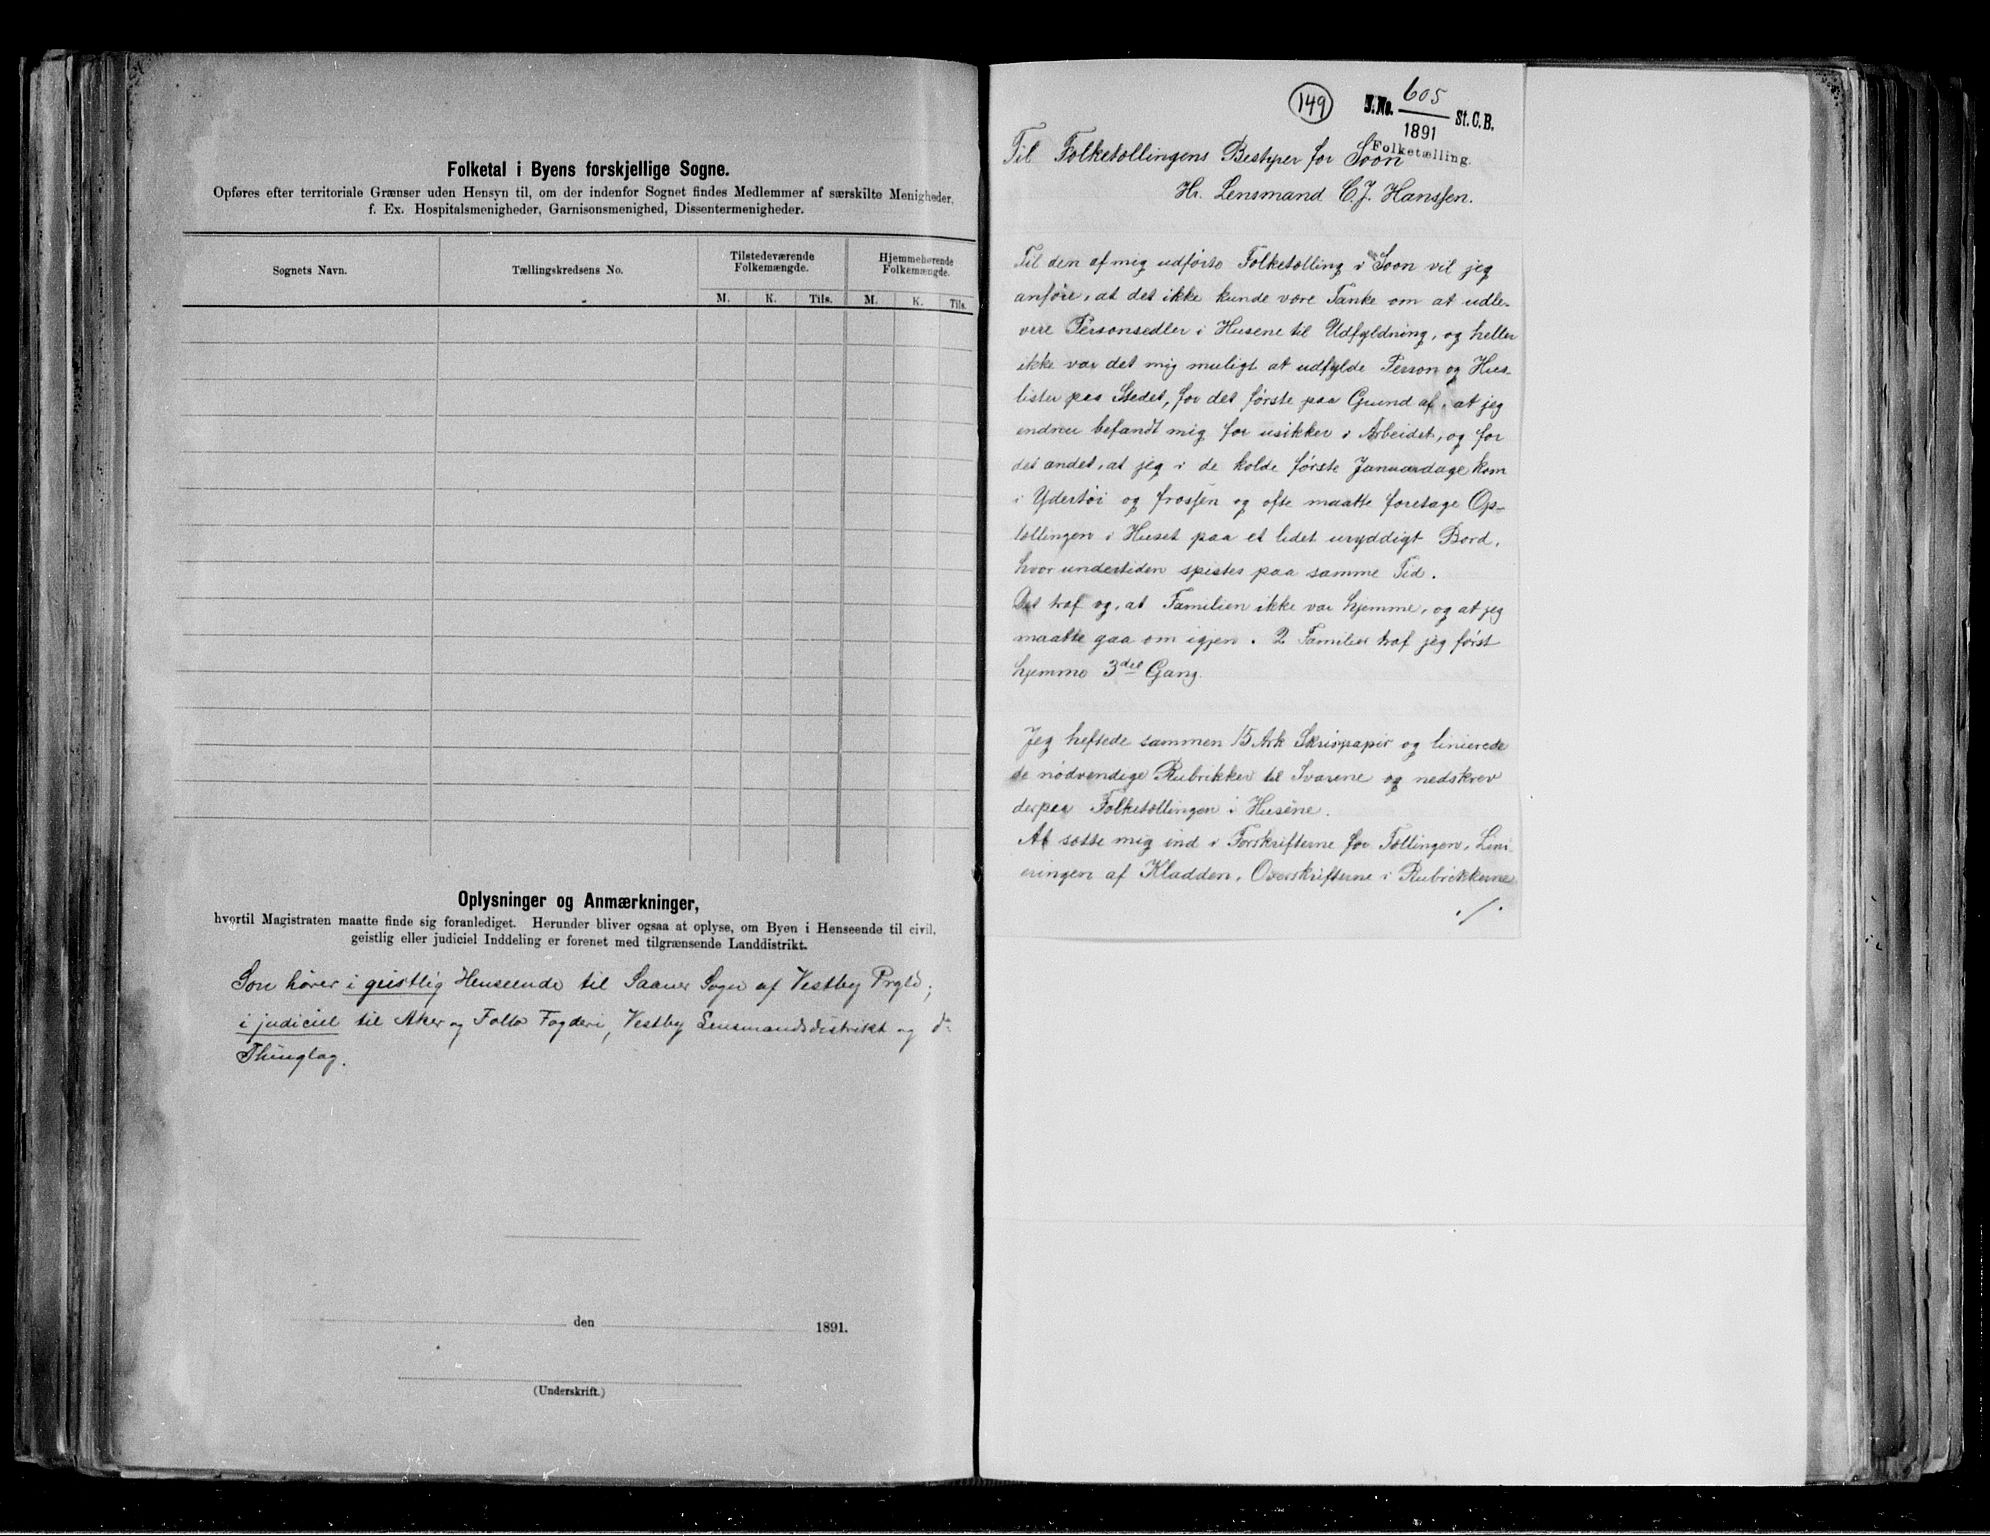 Folketal i Byens forskjellige Sogne.
Opføres efter territoriale Grænser uden Hensyn til, om der indenfor Sognet findes Medlemmer af særskilte Menigheder,
f. Ex. Hospitalsmenigheder, Garnisonsmenighed, Dissentermenigheder.
Sognets Navn.
Tællingskredsens No.
Tilstedeværende
Folkemængde.
Hjemmehørende
Folkemængde.
M. K. Tils. M. K. Tils.
Oplysninger og Anmærkninger,
hvortil Magistraten maatte finde sig foranlediget. Herunder bliver ogsaa at oplyse, om Byen i Henseende til civil,
geistlig eller judiciel Inddeling er forenet med tilgrænsende Landdistrikt.
Son hører i geistlig Henseende til Saaner Sogn af Vestby Prgld;
i judiciel til Aker og Follo Fogderi, Vestby Lensmandsdistrikt og do
Thinglag.
den 1891.
(Underskrift.)
149
J.No. 605 St.C.B.
1891
Folketælling.
Til Folketællingens Bestyrer for Soon
Hr. Lensmand C. J. Hanssen.
Til den af mig udførte Folketælling i Soon vil jeg
anføre, at det ikke kunde være Tanke om at udle-
vere Personsedler i Husene til Udfyldning, og heller
ikke var det mig muligt at udfylde Person og Hus-
lister paa Stedet, for det første paa Grund af, at jeg
endnu befandt mig for usikker i Arbeidet, og for
det andet, at jeg i de kolde første Januardage kom
i Ydertøi og frossen og ofte maatte foretage Op-
tællingen i Huset paa et lidet uryddigt Bord,
hvor undertiden spistes paa samme Tid.
Det traf og, at Familien ikke var hjemme, og at jeg
maatte gaa om igjen. 2 Familier traf jeg først
hjemme 3die Gang.
Jeg heftede sammen 15 Ark Skrivpapir og linierede
de nødvendige Rubrikker til Svarene og nedskrev
derpaa Folketællingen i Husene.
At sætte mig ind i Forskrifterne for Tællingen, Lini-
eringen af Kladden, Overskrifterne i Rubrikkerne
./.